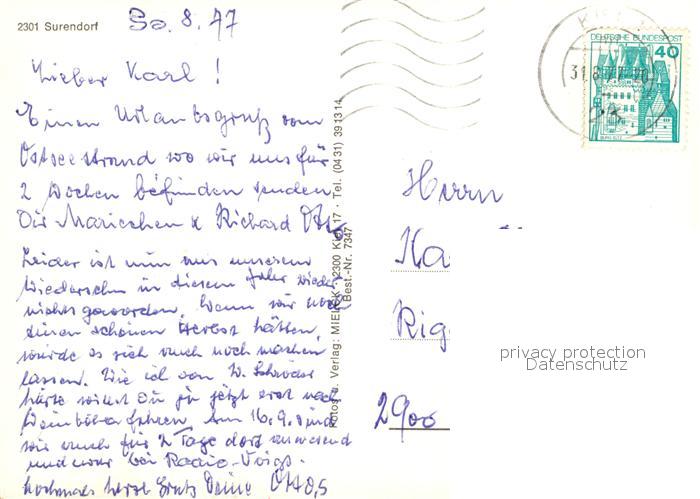 2301 Surendorf
So. 8. 77
Lieber Karl!
Einen Urlaubsgruß vom
Ostseestrand wo wir uns für
2 Wochen befinden senden
Dir Mariechen & Richard Otto
Leider ist nun aus unserem
Wiedersehen in diesem Jahr wieder
nichts geworden. Wenn wir noch
einen schönen Herbst hätten,
würde es sich auch noch machen
lassen. Wie ich von W. Schröder
hörte willst Du ja jetzt erst nach
fahren. Am 16.9. sind
wir auch für 2 Tage dort anwesend
und zwar bei Radio-Voigt.
Nochmals herzl. Gruß Deine Ottos
Fotos u. Verlag: MIELCK · 2300 Kiel 17 · Tel. (0431) 391314
(Best.-Nr. 7347
DEUTSCHE BUNDESPOST
40
31.8.77-20
Herrn
Ka
Rig
2900
privacy protection
Datenschutz